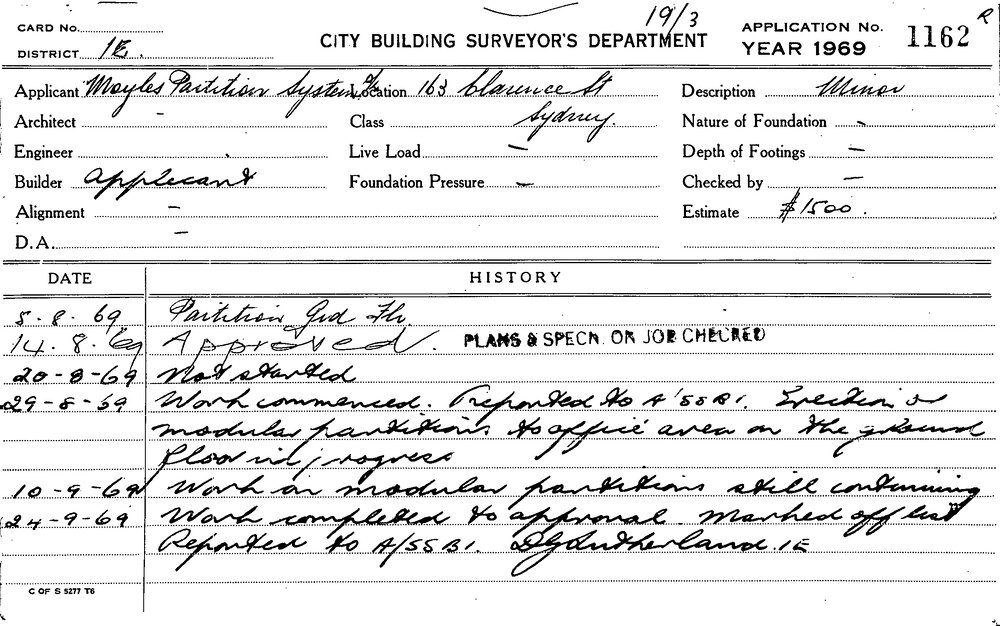 19/3
CARD No. APPLICATION No. 1162 R
DISTRICT 1E. CITY BUILDING SURVEYOR'S DEPARTMENT YEAR 1969
Applicant Moyles Partition Systems Location 163 Clarence St Description Minor
Architect - Class Sydney. Nature of Foundation -
Engineer Live Load - Depth of Footings -
Builder Applicant Foundation Pressure - Checked by -
Alignment - Estimate $1500.
D.A. -
DATE HISTORY
5.8.69 Partition Grd Flr.
14.8.69 Approved. PLANS & SPECN. ON JOB CHECKED
20-8-69 Not started
29-8-69 Work commenced. Reported to A'SSBI. Erection of
modular partitions to office area on the ground
floor in progress
10-9-69 Work on modular partitions still continuing
24-9-69 Work completed to approval. Marked off list
Reported to A/SSBI. DGSutherland. 1E
C OF S 5277 T6